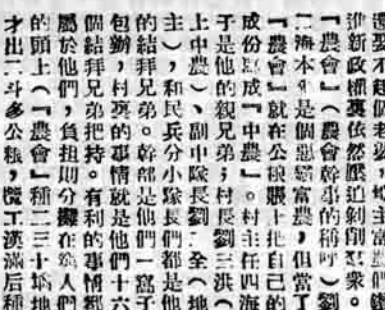 還要不起個老婆，地主富農們鑽
進新政權裏依然壓迫剝削羣衆。
『農會』（農會幹事的稱呼）劉
二海本來是個惡霸富農，但當了
『農會』就在公糧賬上把自己的
成份寫成『中農』。村主任四海
子是他的親兄弟；村長劉三洪（
上中農）、副中隊長劉二全（地
主），和民兵分小隊長們都是他
的結拜兄弟。幹部是他們一窩子
包辦，村裏的事情就是他們十六
個結拜兄弟把持。有利的事情都
屬於他們，負担則分攤在窮人們
的頭上（『農會』種二三十坰地
才出二斗多公糧，攬工漢滿后種